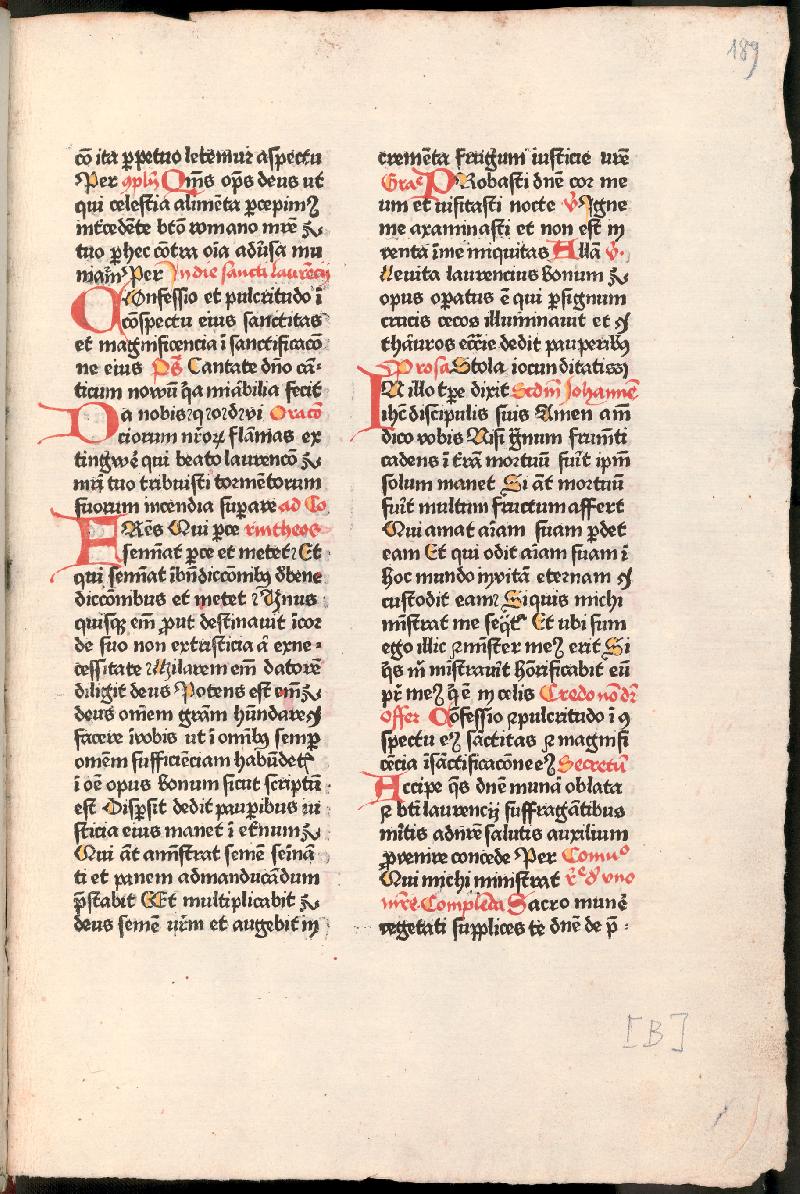 189
cō ita ꝑpetuo letemur aspectu
Per ꝯplꝫ Qm̄s op̄s deus ut
qui celestia alimēta ꝑcepimꝰ
int̄cedēte btō romano mr̄e
tuo ꝑ hec cōtra oīa adūsa mu
niam̄ Per In die sancti laurēcij
Confessio et pulcritudo ī
cōspectu eius sanctitas
et magnificencia ī sanctificacō
ne eius Ps̄ Cantate dn̄o cāº
ticum nowū q̄a mīabilia fecit
Da nobis qͦ or dr̄ vi Oracō
ciorum nr̄orꝝ flāmas ex
tingwē qui beato laurencō
mr̄i tuo tribuisti tormētorum
suorum incendia suꝑare ad Co
Fr̄es Qui ꝑce rintheos
semīat ꝑce et metet Et
qui semīat ī bn̄diccōnibꝰ d̄ bene
diccōnibus et metet Vnus
quisqꝫ em̄ ꝓut destinauit ī cor
de suo non ex tristicia ā ex ne
cessitate hilarem em̄ datorē
diligit deus Potens est em̄
deus om̄em grām hūndare
facere ī vobis ut ī om̄ibꝰ semꝑ
omēm sufficiēciam habūdetꝭ
ī oē opus bonum sicut scriptū
est Disꝑsit dedit pauꝑibus iu
sticia eius manet ī et̄num
Qui āt amīstrat semē semīā
ti et panem ad manducādum
p̄stabit Et multiplicabit
deus semē vr̄m et augebit in
cremēta frugum iusticie vr̄e
Graͤ PRobasti dn̄e cor me
um et uisitasti nocte v̄ Igne
me axaminasti et non est in
venta ī me iniquitas Allā v̄.
Leuita laurencius bonum
opus oꝑatus ē qui ꝑ signum
crucis cecos illuminauit et
thāuros ecc̄ie dedit pauperibꝰ
Prosa Stola iocunditatis
IN illo tꝑe dixit Scdm̄ Iohannē
ihē discipulis suis Amen am̄
dico vobis Nisi ḡnum frum̄ti
cadens ī t̄rā mortuū fūit ipm̄
solum manet Si āt mortuū
fūit multum fructum affert
Qui amat aīam suam ꝑdet
eam Et qui odit aīam suam ī
hoc mundo in vitā eternam
custodit eam Si quis michi
mīstrat me seq̄tͬ Et ubi sum
ego illic ꝛ mīster meꝰ erit Si
q̄s m̄ mistrauit hōrificabit eū
pr̄ meꝰ q̄ ē in celis Credo nō dr̄
offer Cōfessio ꝛ pulcritudo ī ꝯ
spectu eꝰ sāctitas ꝛ magnifi
cēcia ī sāctificacōne eꝰ Secretū
Accipe q̄s dn̄e muna oblata
ꝛ bti laurencij suffragātibus
mītis ad nr̄e salutis auxilium
ꝓvenire concede Per Comuͦ
Qui michi ministrat r̄ᵉ d̄ vno
mr̄e. Complēda Sacro munē
vegetati supplices te dn̄e de p̄
[B]